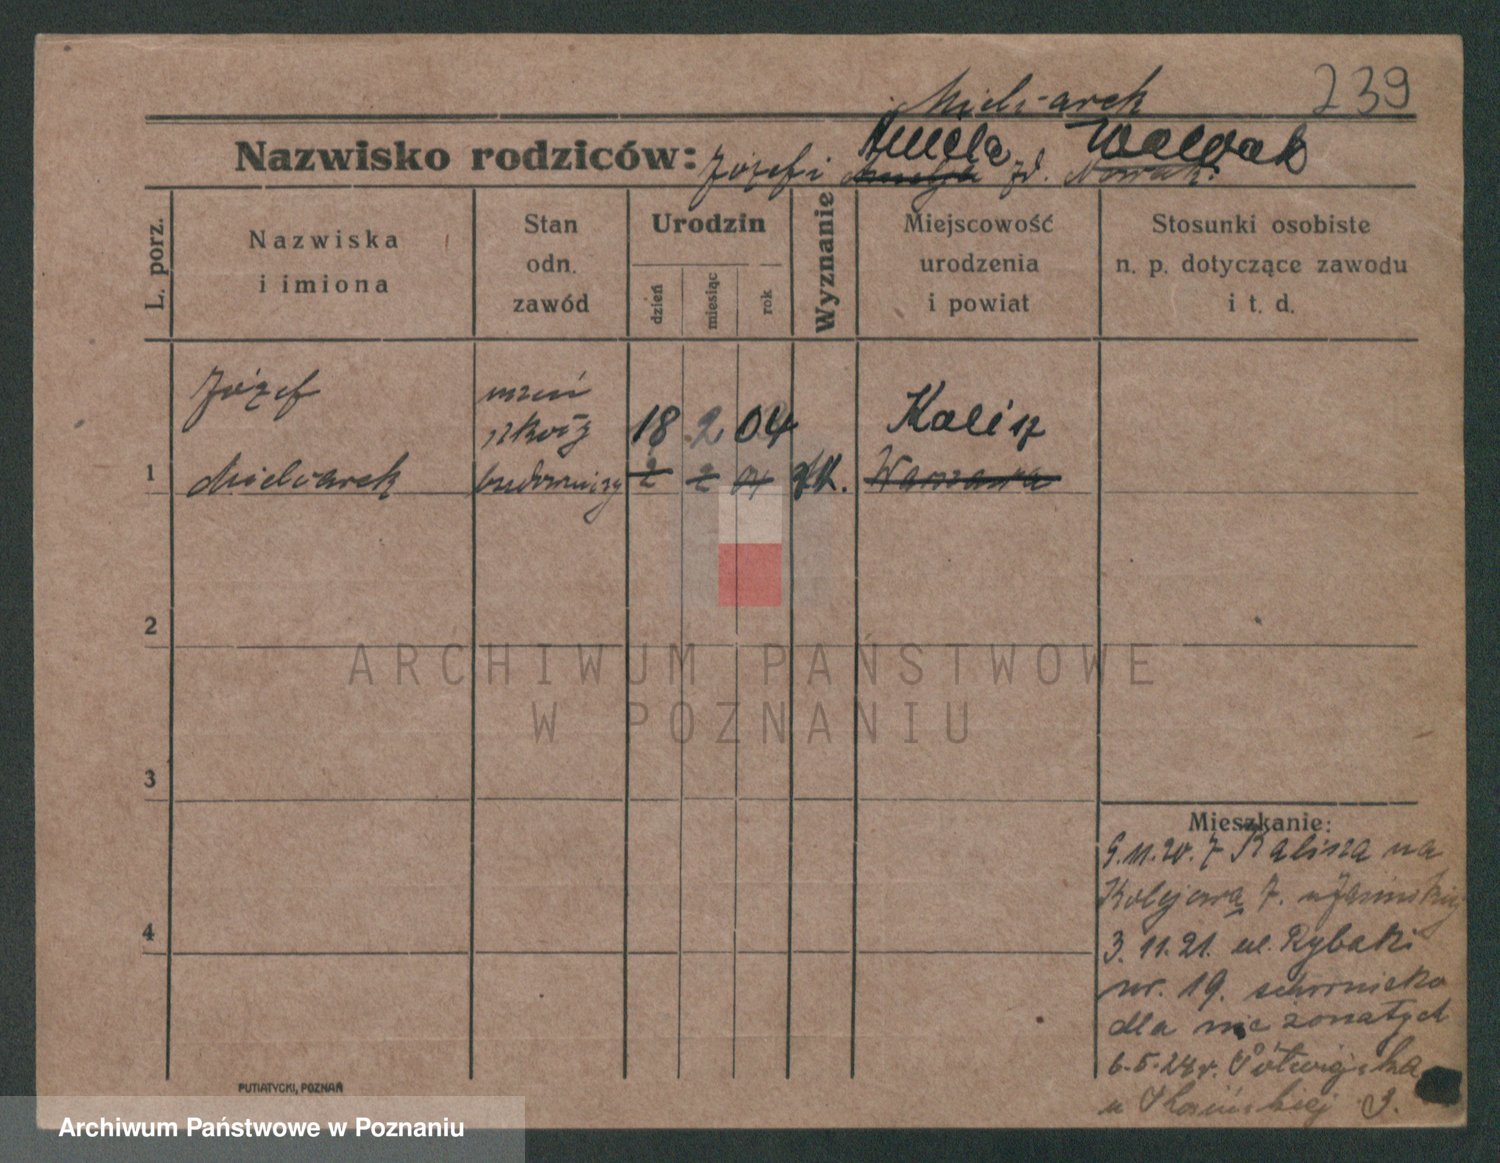 239
Mielcarek
Nazwisko rodziców: Józef i Amelja zd. Nowak.
Amela Walczak
L. porz.
Nazwiska
i imiona
Stan
odn.
zawód
Urodzin
dzień
miesiąc
rok
Wyznanie
Miejscowość
urodzenia
i powiat
Stosunki osobiste
n. p. dotyczące zawodu
i t. d.
Józef
uczeń
szkoły
18 2 04
Kalisz
1
Mielcarek
budowniczy
2 2 04
rk.
Warszawa
2
ARCHIWUM PAŃSTWOWE
W POZNANIU
3
Mieszkanie:
9.11.20. z Kalisza na
Kolejową 7. u
4
3.11.21. ul. Rybaki
nr. 19. schronisko
dla nie żonatych
6.5.24 r. Półwiejska
u 9.
PUTIATYCKI, POZNAŃ
Archiwum Państwowe w Poznaniu